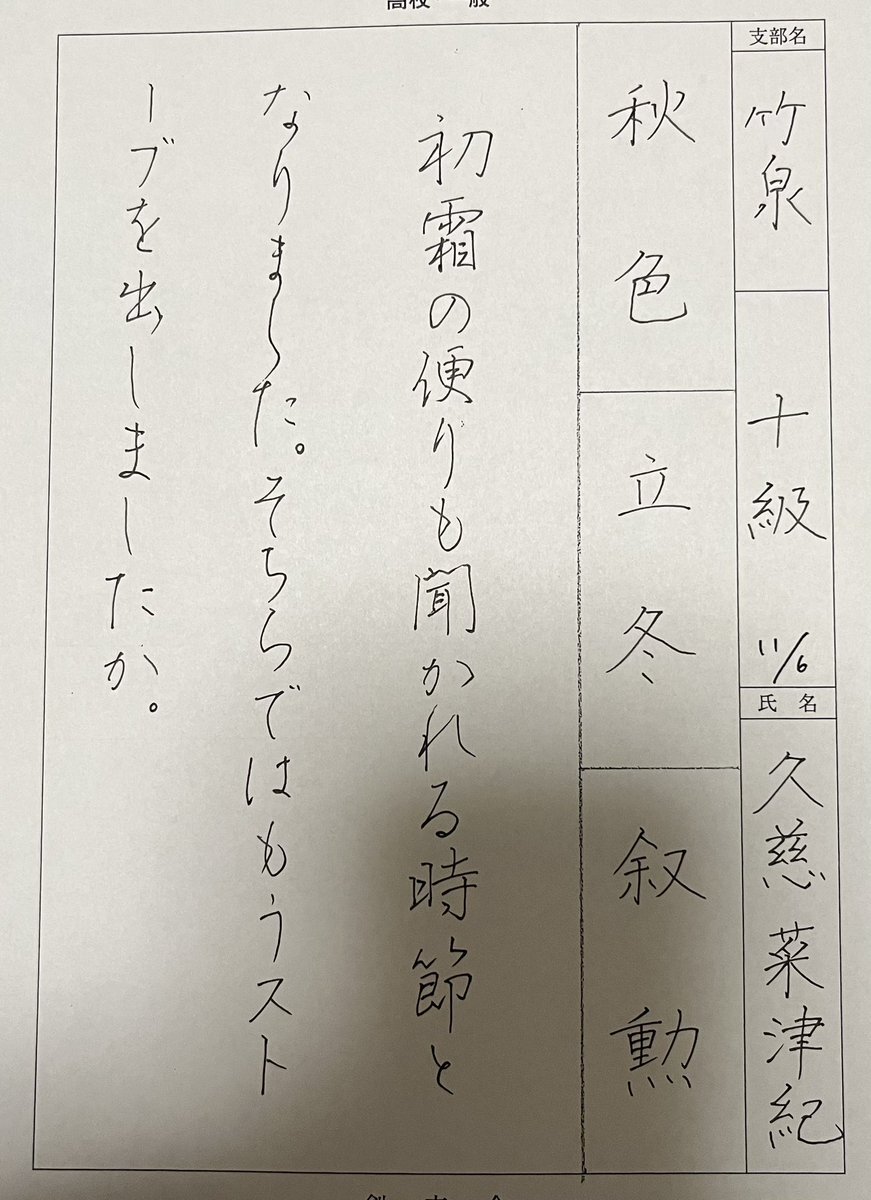 支部名
竹泉
十級
11/6
氏名
久慈菜津紀
秋色
立冬
叙勲
初霜の便りも聞かれる時節と
なりました。そちらではもうスト
ーブを出しましたか。